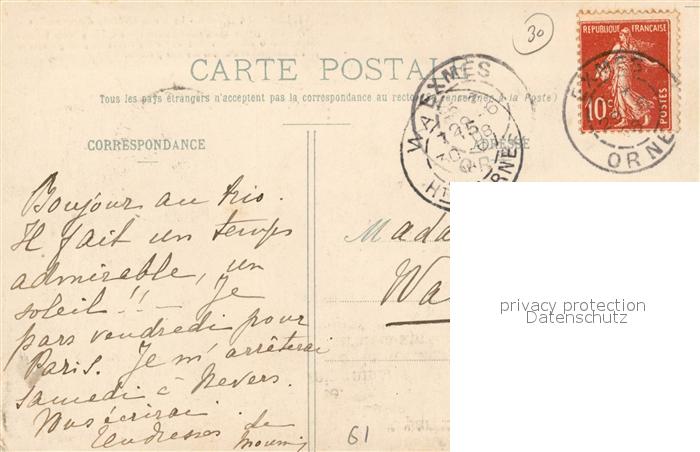 30
REPUBLIQUE FRANÇAISE
10c
POSTES
EXMES
ORNE
CARTE POSTALE
EXMES
ORNE
Tous les pays étrangers n'acceptent pas la correspondance au recto (se renseigner à la Poste)
CORRESPONDANCE
ADRESSE
Bonjour au trio.
Il fait un temps
admirable, un
soleil!! — Je
pars vendredi pour
Paris. Je m'arrêterai
samedi à Nevers.
Vous écrirai.
Tendresses de
Mada
Wa
61
privacy protection
Datenschutz